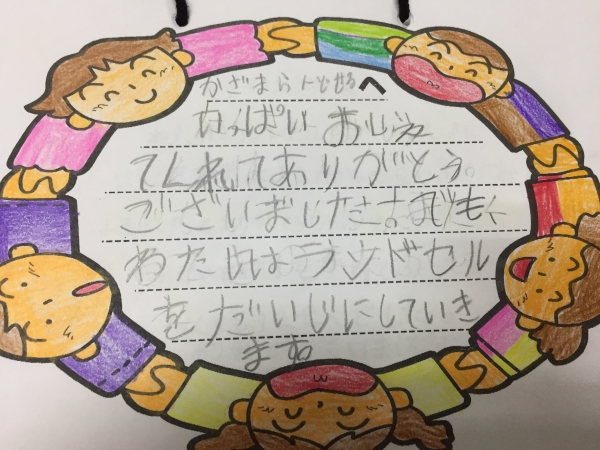 かざまらんどせるへ
いっぱい おしえ
てくれてありがとう
ございました。
わたしはランドセル
をだいじにしていき
ます